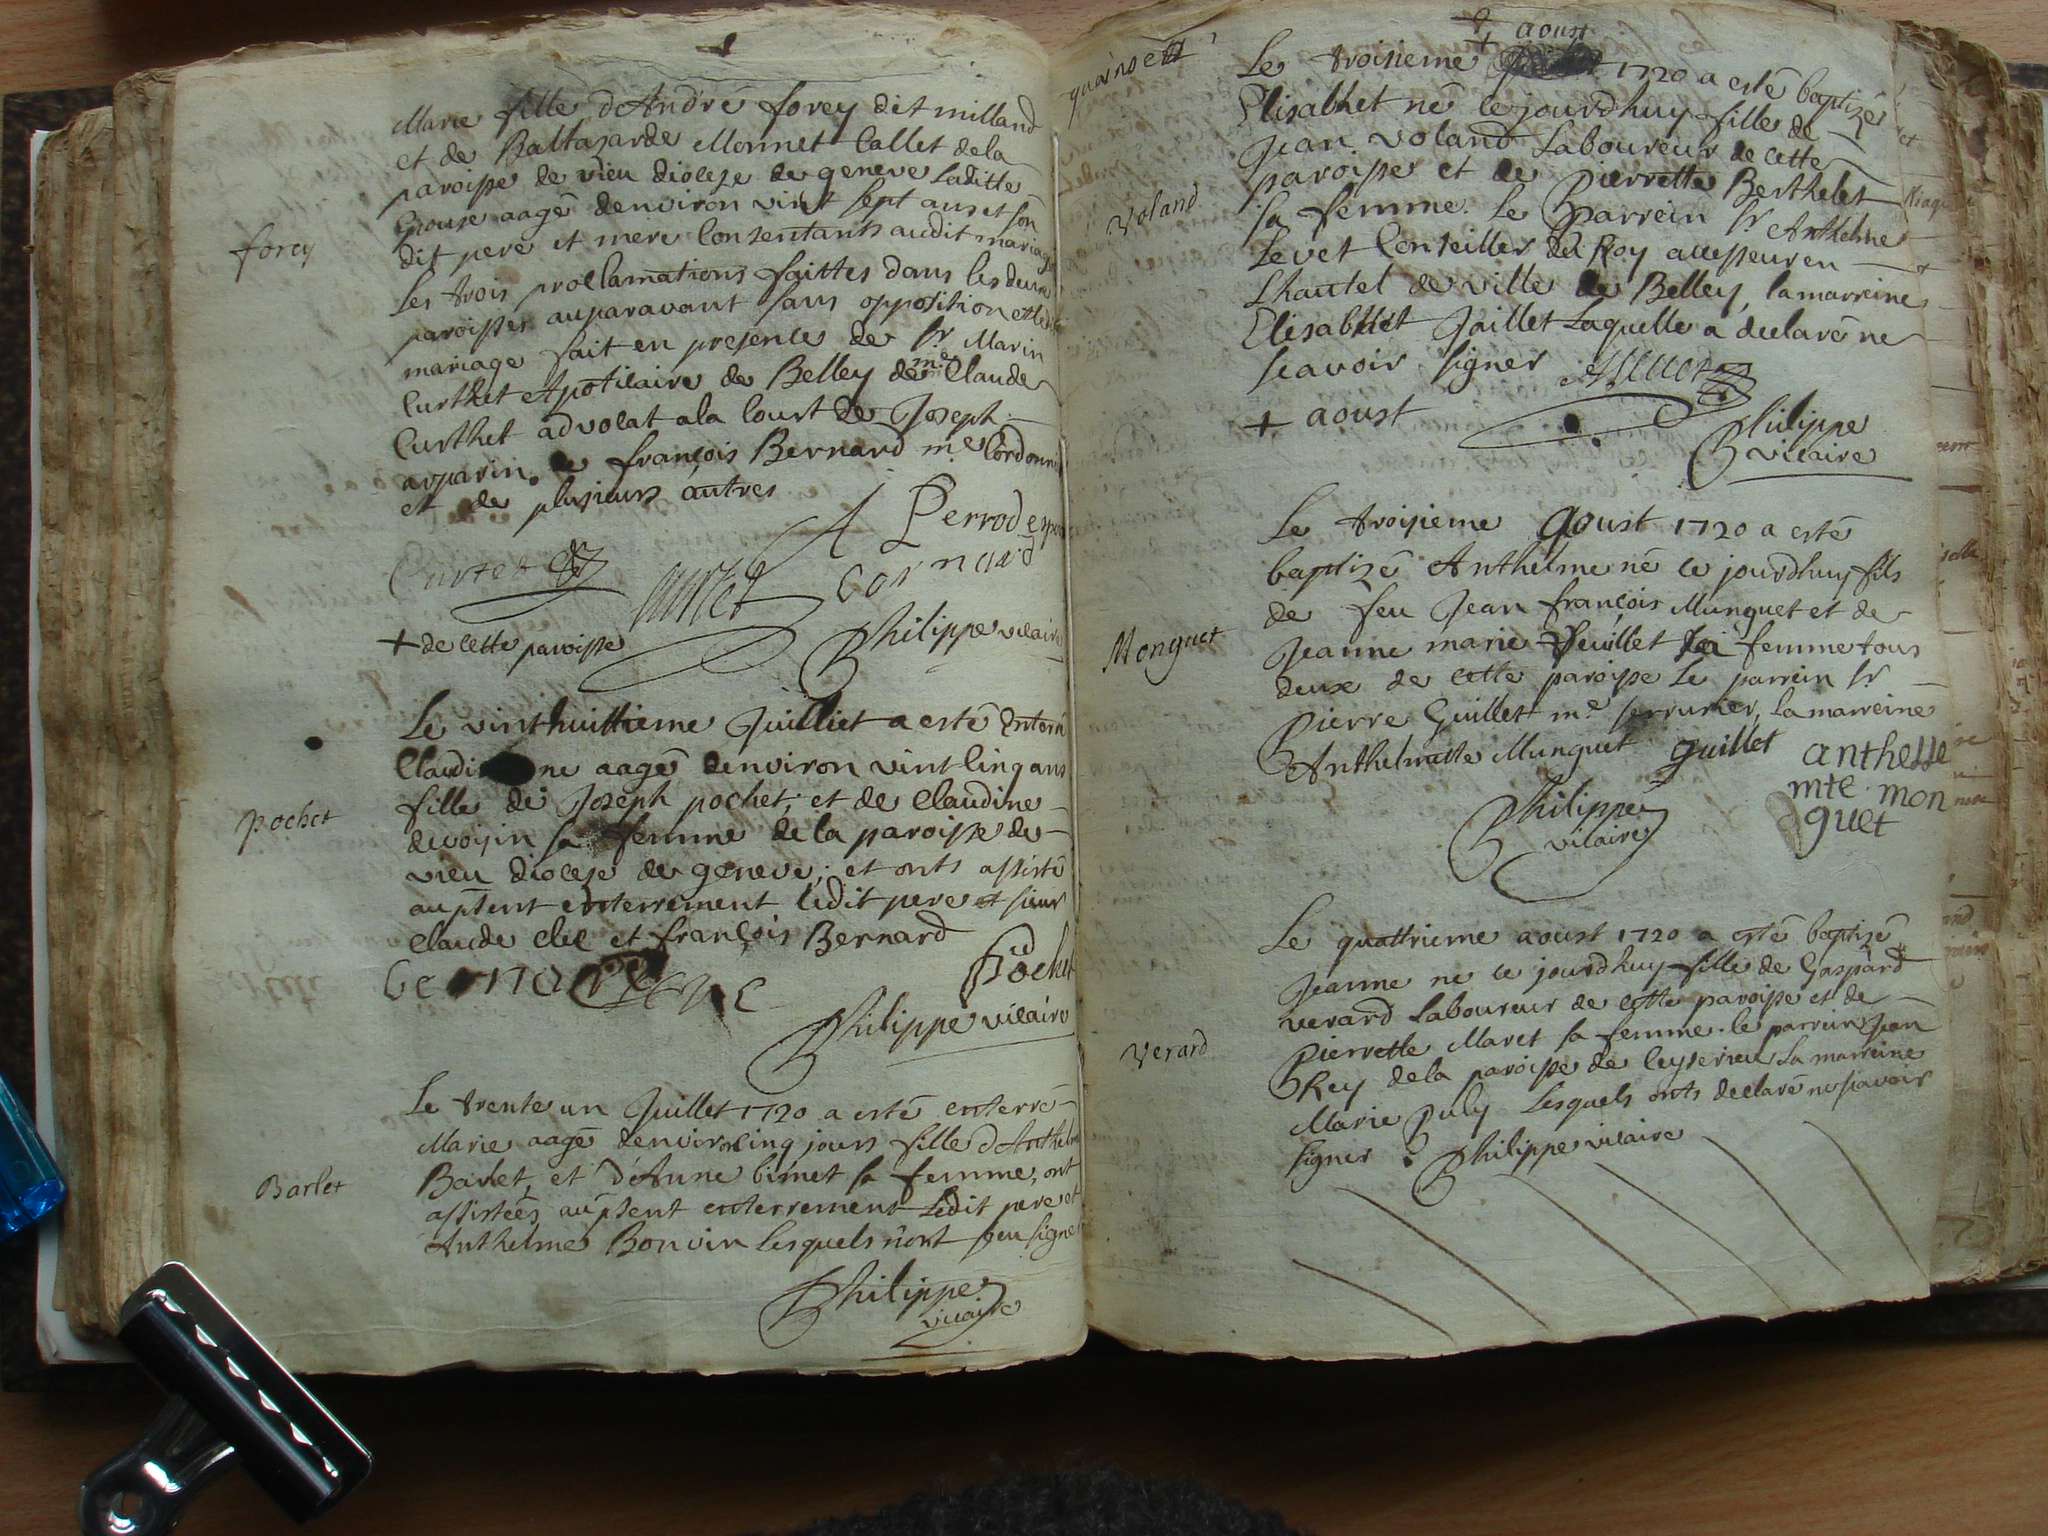 Marie fille d'André forey dit milland
et de Baltasarde Monnet Callet dela
paroisse de vieu diocese de geneve laditte
Epouse aagé denviron vint sept ans et son
forey
dit pere et mere Consentants audit mariage
les trois proclamations faittes dans les deux
paroisses auparavant sans opposition et ledit
mariage fait en presence de Sr Marin
Curthet Apoticaire de Belley de me Claude
Curthet advocat ala Court de Joseph
arparin de françois Bernard me Cordonnie
et de plusieurs autres
Perrod
Curtet Curtet bernard
+ de cette paroisse
Philippe vicaire
Le vinthuittieme Juilliet a esté Enterré
Claudine aagé denviron vint Cinq ans
pochet
fille de Joseph pochet, et de Claudine
devoisin sa femme de la paroisse de
vieu diocese de geneve, et onts assisté
au pñent enterrement ledit pere et sieur
Claude Clec et françois Bernard
bernard
Pochet
Philippe vicaire
Le trente un Juillet 1720 a esté enterré
Marie aagé denviron Cinq jours fille d'Anthelme
Barlet
Barlet, et d'Anne bimet sa femme, ont
assistées au pñent enterrement Ledit pere et
Anthelme Bonvin Lesquels n'ont sceu signe
Philippe
vicaire
quainsett
+ aoust
Le troisieme 1720 a esté baptizé
Elisabhet né ce jourdhuy fille de
Jean Voland Laboureur de cette
Voland
paroisse et de Pierrette Berthelet
sa femme. Le Parrein Sr Anthelme
Levet Conseiller du Roy assesseur en
Lhautel de ville de Belley, la marreine
Elisabhet Jaillet Laquelle a declaré ne
scavoir signer ALevet
+ aoust
Philippe
vicaire
Le troisieme Aoust 1720 a esté
baptizé Anthelme né ce jourdhuy fils
de feu Jean françois Munguet et de
Monguet
Jeanne marie Peuillet sa femme tous
deux de cette paroisse Le parrein Sr
Pierre Guillet me serrurier, La marreine
Anthelmette Munguet guillet anthesse
mte mon
guet
Philippe
vicaire
Le quattrieme aoust 1720 a esté baptizé
Jeanne né ce jourdhuy fille de Gaspard
verard Laboureur de cette paroisse et de
Verard
Pierrette Maret sa femme. le parrein Jean
Rey dela paroisse de Ceyserieu La marreine
Marie Puly Lesquels onts declaré ne scavoir
signer.
Philippe vicaire